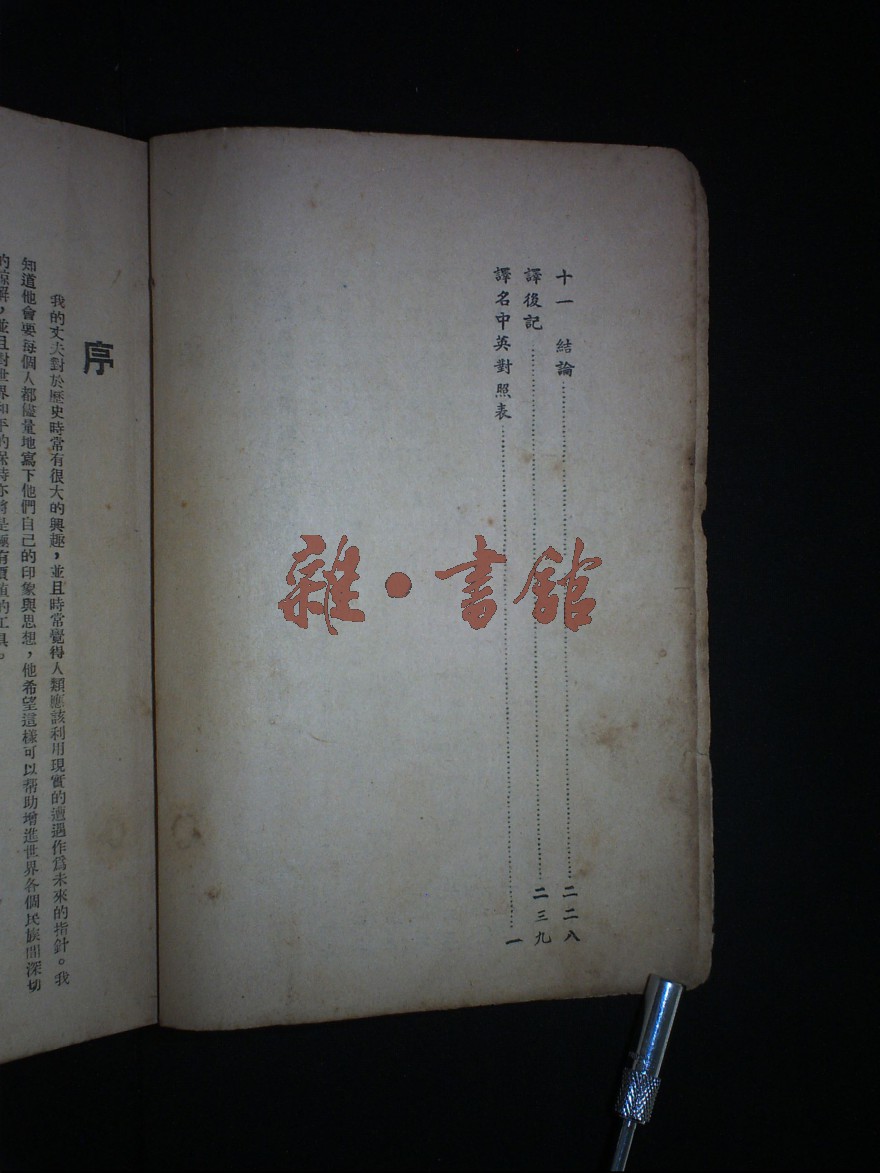 十一 結論……二二八
譯後記……二三九
譯名中英對照表……一
序
我的丈夫對於歷史時常有很大的興趣，並且時常覺得人類應該利用現實的遭遇作爲未來的指針。我
知道他會要每個人都儘量地寫下他們自己的印象與思想，他希望這樣可以帮助增進世界各個民族間深切
的諒解，並且對世界和平的保持亦將是極有價值的工具。
雜·書館